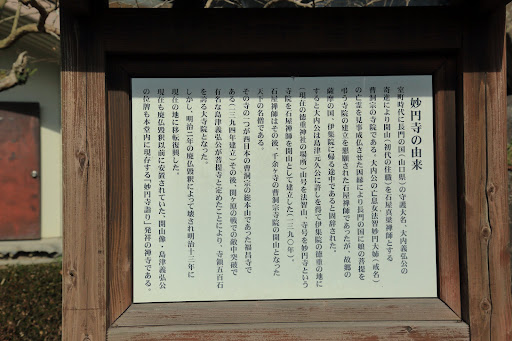 妙円寺の由来
室町時代に長門の国(山口県)の守護大名、大内義弘公の
寄進により開山(初代の住職)を石屋真梁禅師とする
曹洞宗の寺院である。大内公の亡息女法智妙円大姉(戒名)
の亡霊を見事成仏させた因縁により長門の国に娘の菩提を
弔う寺院の建立を懇願された石屋禅師であったが、故郷の
薩摩の国、伊集院に帰る途中であると固辞された。
すると大内公は島津元久公に許しを得て伊集院の徳重の地に
(現在の徳重神社の場所)山号を法智山、寺号を妙円寺という
寺院を石屋禅師を開山として建立した(一三九〇年)。
石屋禅師はその後、千余ヶ寺の曹洞宗寺院の開山となった
天下の名僧である。
その寺の一つが西日本の曹洞宗の総本山であった福昌寺で
ある(一三九四年建立)その後、関ヶ原の戦での敵中突破で
有名な島津義弘公が菩提寺と定めたことにより、寺領五百石
を誇る大寺院となった。
しかし、明治二年の廃仏毀釈によって壊され明治十三年に
現在の地に移転復興した。
現在も廃仏毀釈以前に安置されていた、開山像・島津義弘公
の位牌も本堂内に現存する「妙円寺詣り」発祥の禅寺である。